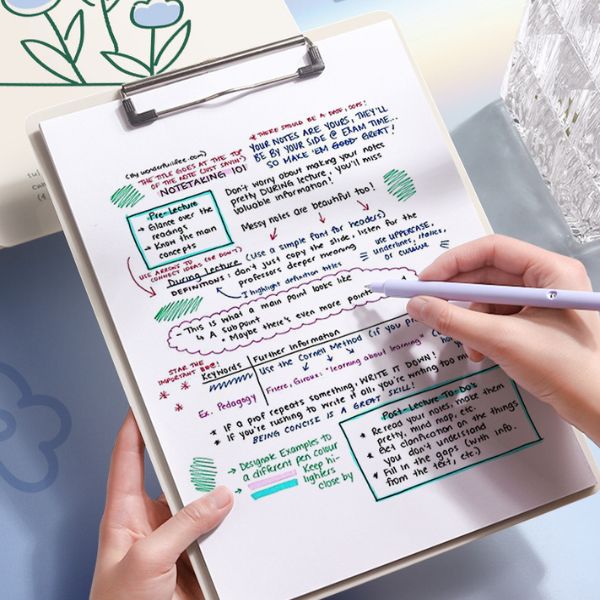 * THERE SHOULD BE A DATE, DOES!
YOUR NOTES ARE YOURS, THEY'LL
BE BY YOUR SIDE @ EXAM TIME...
SO MAKE 'EM GOOD GREAT!
(My wonderfullife.com)
THE TITLE GOES AT THE TOP
OF THE NOTE (JUST SAYIN')
NOTETAKING 101
Don't worry about making your notes
pretty DURING lecture, you'll miss
valuable information!
Messy notes are beautiful too!
Pre-Lecture
→ Glance over the
readings
→ Know the main
concepts
USE ARROWS TO
CONNECT IDEAS (OR DON'T)
During Lecture (Use a simple font for headers)
DEFINITIONS: don't just copy the slide, listen for the
professors deeper meaning
I highlight definition titles
use UPPERCASE,
Underlines, italics,
or cursive
This is what a main point looks like
↳ A Subpoint
• Maybe there's even more
STAR THE
IMPORTANT
Keywords
Further Information
Use the Cornell Method (if you
Ex. Pedagogy
Friere, Giroux: "learning about learning"
* If a prof repeats something, WRITE IT DOWN!
* If you're rushing to write it all, you're writing too
BEING CONCISE IS A GREAT SKILL!
→ Designate Examples to
a different pen colour
→ Keep hi-
lighters
close by
Post-Lecture To-Do's
* Re read your notes, make them
pretty, mind map, etc.
* Get clarification on the things
you don't understand
* Fill in the gaps (with info.
from the text, etc.)